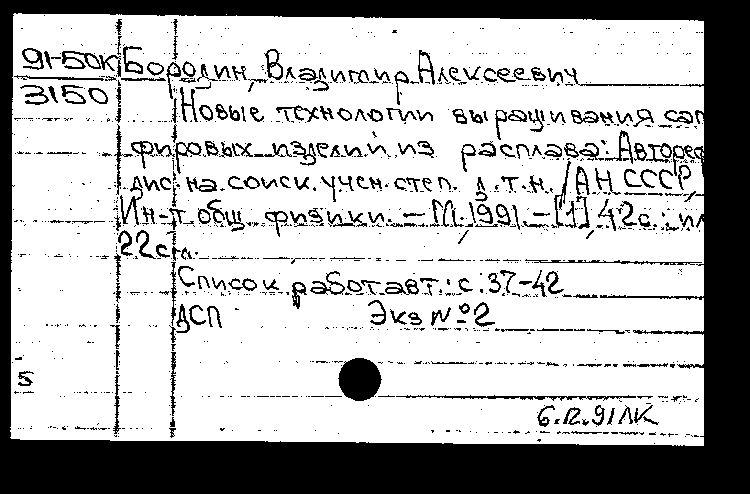 91-50к Бородин, Владимир Алексеевич
3150
Новые технологии выращивания сап
фировых изделий из расплава: Авторе
дис. на соиск. учен. степ. д.т.н. /АН СССР,
Ин-т общ. физики. — М. 1991. — [1], 42с.: ил
22см.
Список работ авт.: с. 37-42
ДСП Экз №2
5
6.12.91 ЛК